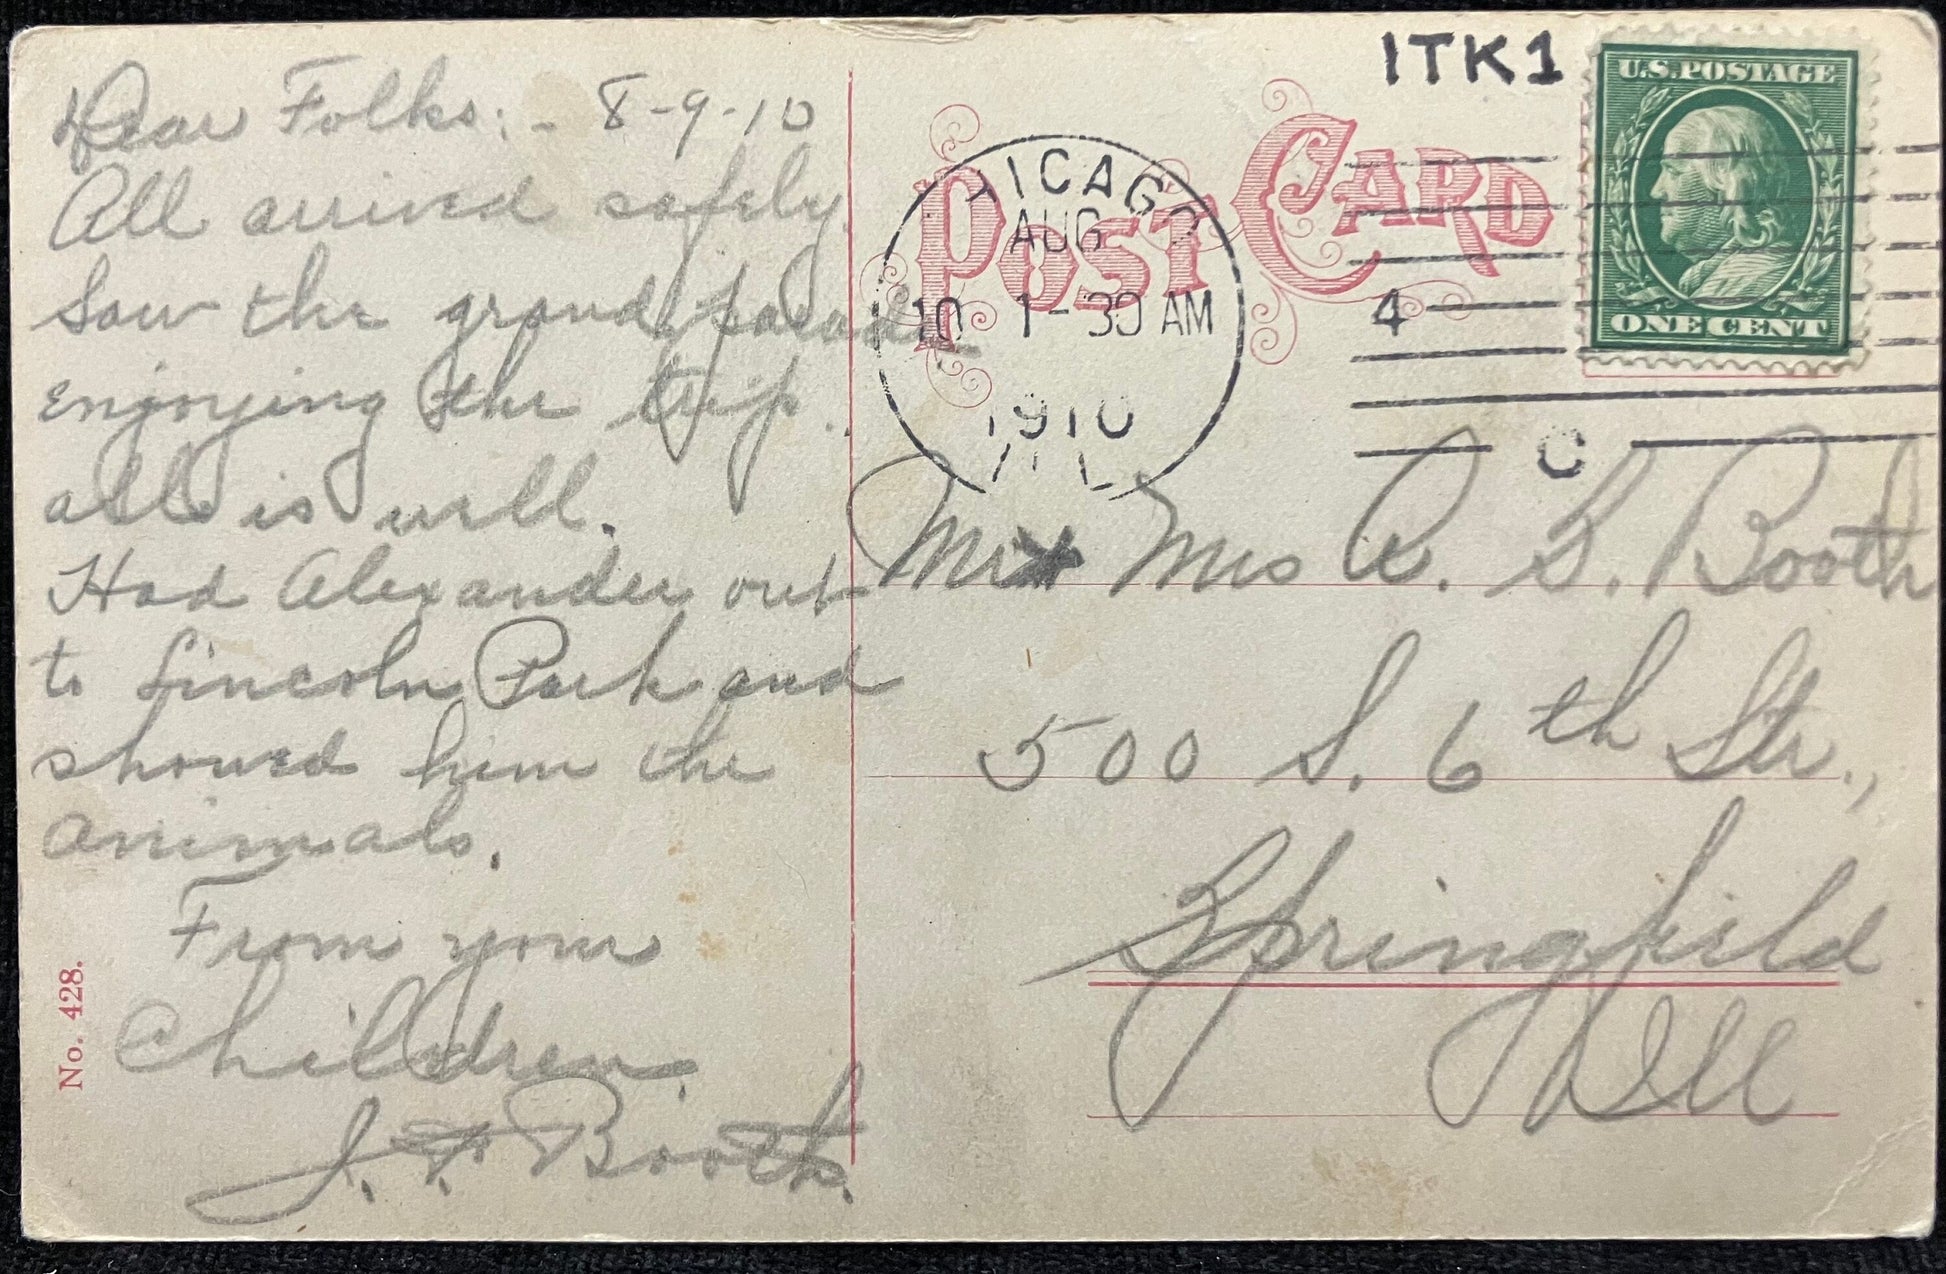 Dear Folks:- 8-9-10
All arrived safely.
Saw the grand parade
enjoying the trip.
all is well.
Had Alexander out
to Lincoln Park and
showed him the
animals.
From your
Children.
J. F. Booth.
No. 428.
ITK1
U.S. POSTAGE
ONE CENT
POST CARD
CHICAGO
AUG
10 1-30 AM
1910
ILL
4
C
Mr & Mrs A. S. Booth
500 S. 6th Str.,
Springfield
Ill